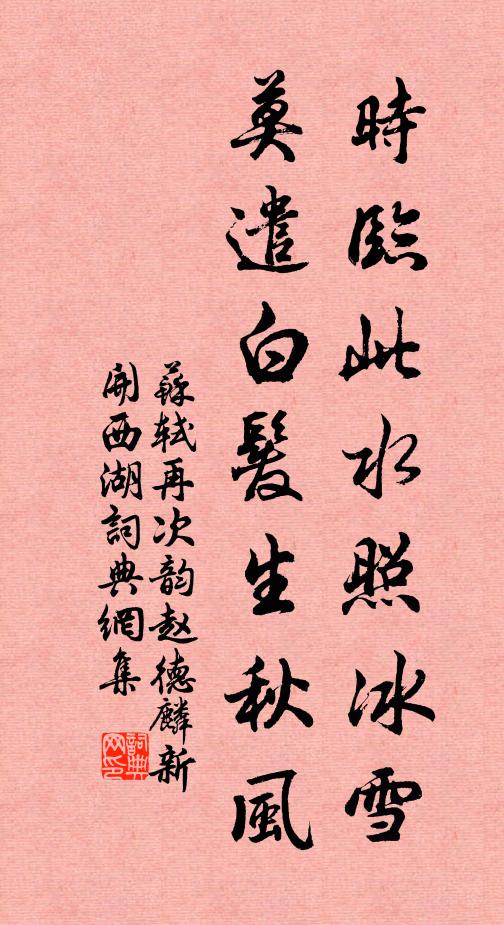 時臨此水照冰雪
莫遣白髮生秋風
蘇軾再次韵赵德麟新
開西湖詞典網集
詞典
网印